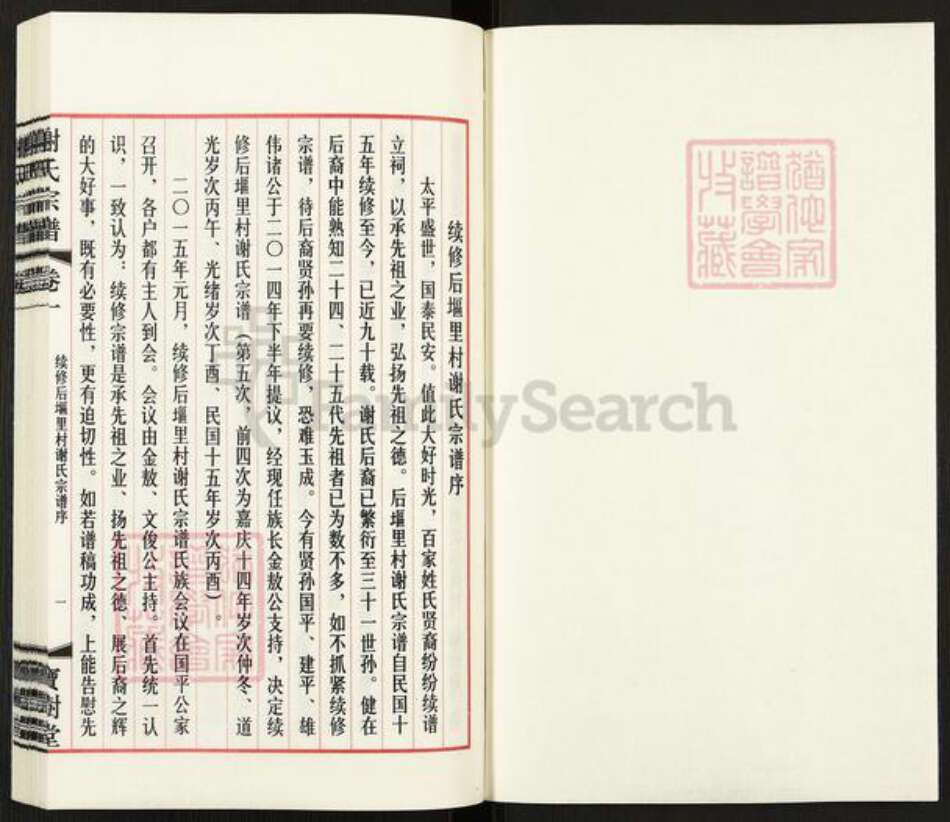 续修后堰里村谢氏宗谱序
太平盛世，国泰民安。值此大好时光，百家姓氏贤裔纷纷续谱
立祠，以承先祖之业，弘扬先祖之德。后堰里村谢氏宗谱自民国十
五年续修至今，已近九十载。谢氏后裔已繁衍至三十一世孙。健在
后裔中能熟知二十四、二十五代先祖者已为数不多，如不抓紧续修
宗谱，待后裔贤孙再要续修，恐难玉成。今有贤孙国平、建平、雄
伟诸公于二〇一四年下半年提议，经现任族长金敖公支持，决定续
修后堰里村谢氏宗谱（第五次，前四次为嘉庆十四年岁次仲冬、道
光岁次丙午、光绪岁次丁酉、民国十五年岁次丙酉）。
二〇一五年元月，续修后堰里村谢氏宗谱氏族会议在国平公家
召开，各户都有主人到会。会议由金敖、文俊公主持。首先统一认
识，一致认为：续修宗谱是承先祖之业、扬先祖之德、展后裔之辉
的大好事，既有必要性，更有迫切性。如若谱稿功成，上能告慰先
谢氏宗谱 卷一
续修后堰里村谢氏宗谱序
一
宝树堂
譜學會
收藏
FamilySearch